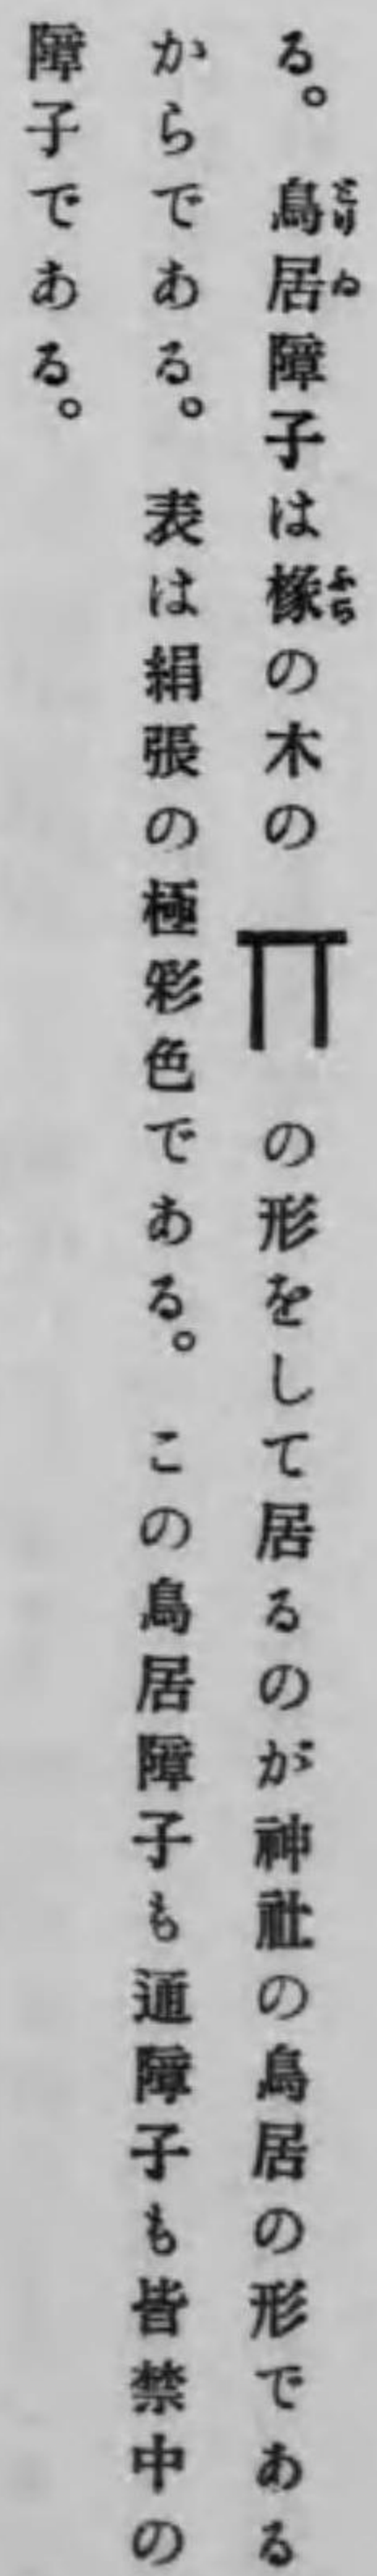 る。　鳥居障子は椽の木の　の形をして居るのが神社の鳥居の形である
からである。　表は絹張の極彩色である。　この鳥居障子も通障子も皆禁中の
障子である。